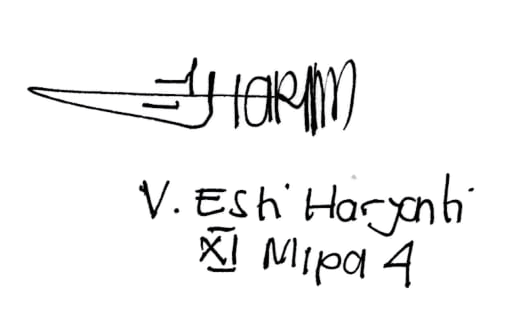 V. Esti Haryanti
XI Mipa 4